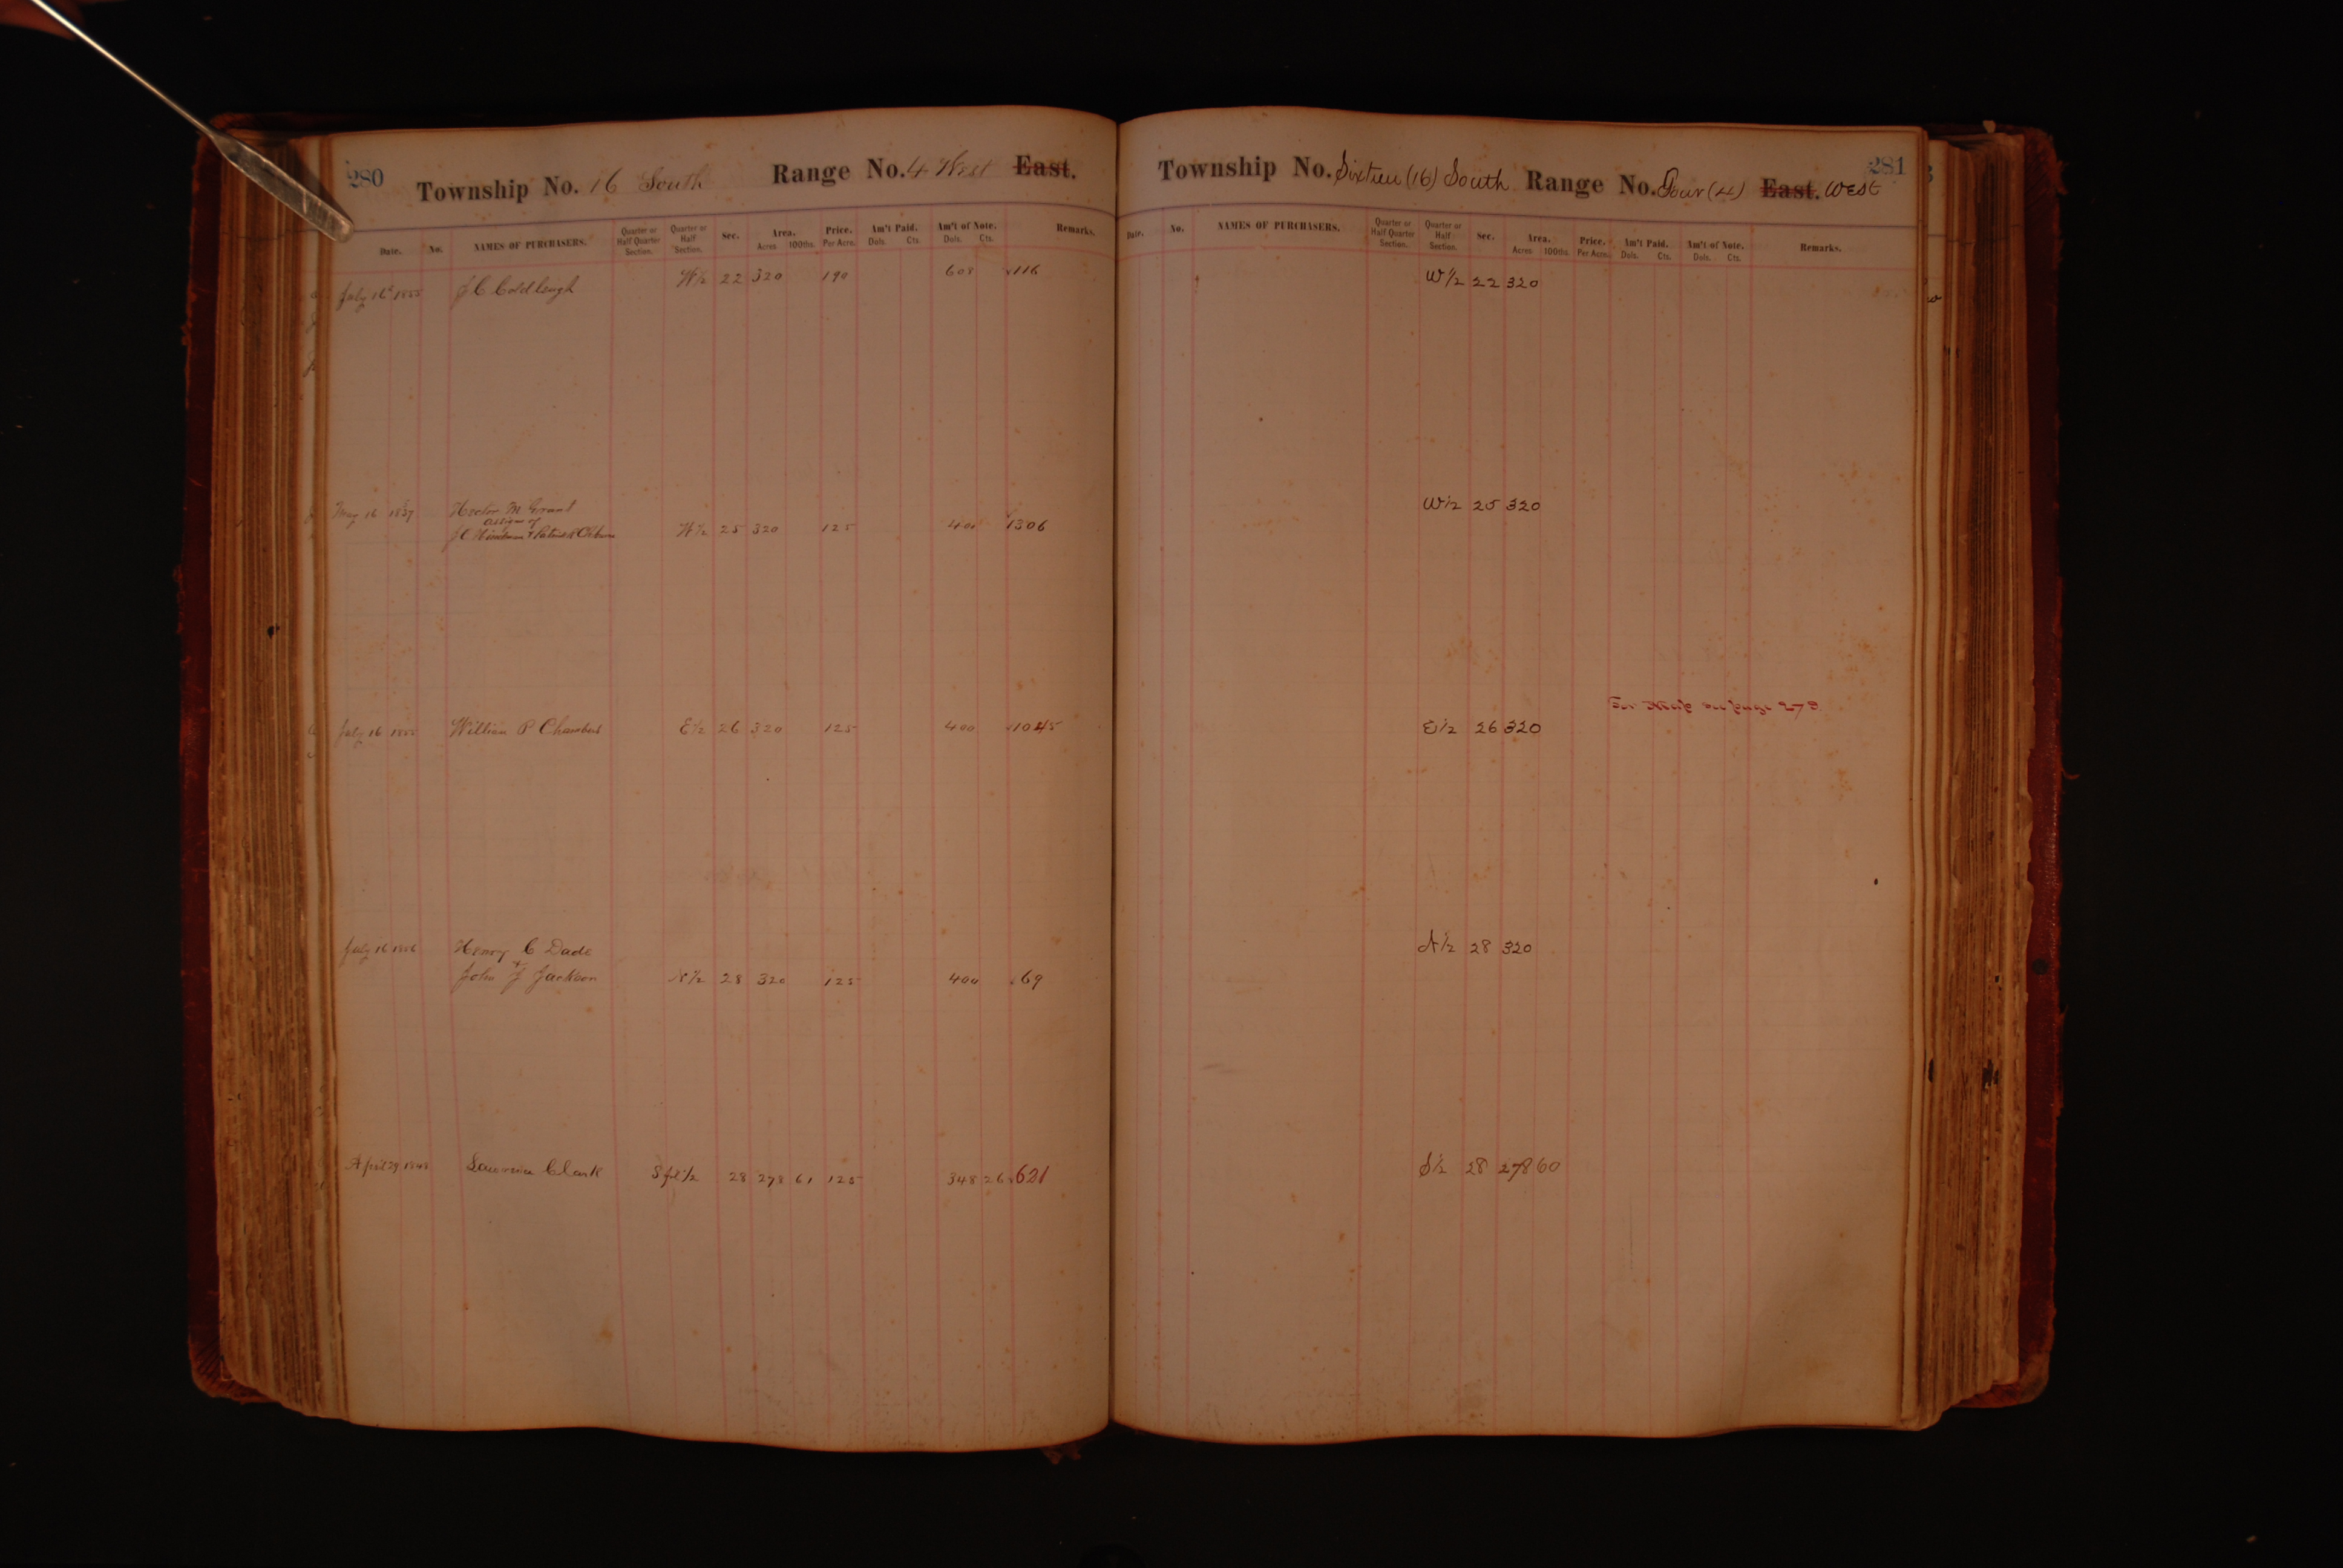 280
Township No. 16 South Range No. 4 West East.
Date. No. NAMES OF PURCHASERS. Quarter or Half Quarter Section. Quarter or Half Section. Sec. Area. Acres 100ths. Price. Per Acre. Am't Paid. Dols. Cts. Am't of Note. Dols. Cts. Remarks.
July 16 J C Coldleugh W 1/2 22 320 190 608 116
May 16 1837 Hector M Grant
assignee of
J C & Patrick W 1/2 25 320 125 400 1306
July 16 William P Chambers E 1/2 26 320 125 400 1045
July 16 Henry C Dade
&
John J Jackson N 1/2 28 320 125 400 69
April 29 Lawrence Clark S 1/2 28 278 61 125 348 26 621
281
Township No. Sixteen (16) South Range No. Four (4) East. West
Date. No. NAMES OF PURCHASERS. Quarter or Half Quarter Section. Quarter or Half Section. Sec. Area. Acres 100ths. Price. Per Acre. Am't Paid. Dols. Cts. Am't of Note. Dols. Cts. Remarks.
W 1/2 22 320
W 1/2 25 320
For Map see page 279
E 1/2 26 320
N 1/2 28 320
S 1/2 28 278 60